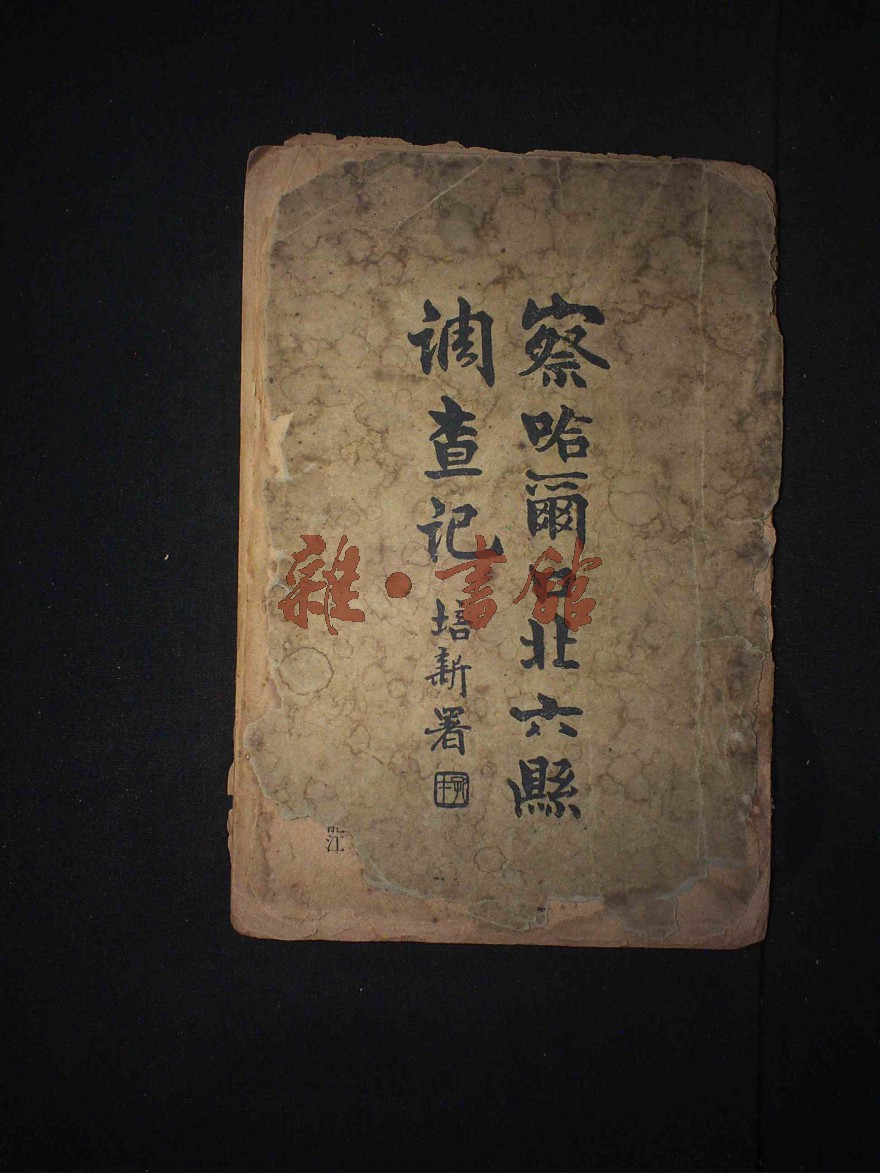 察哈爾口北六縣
調查記
培新署
龍江
雜·書館